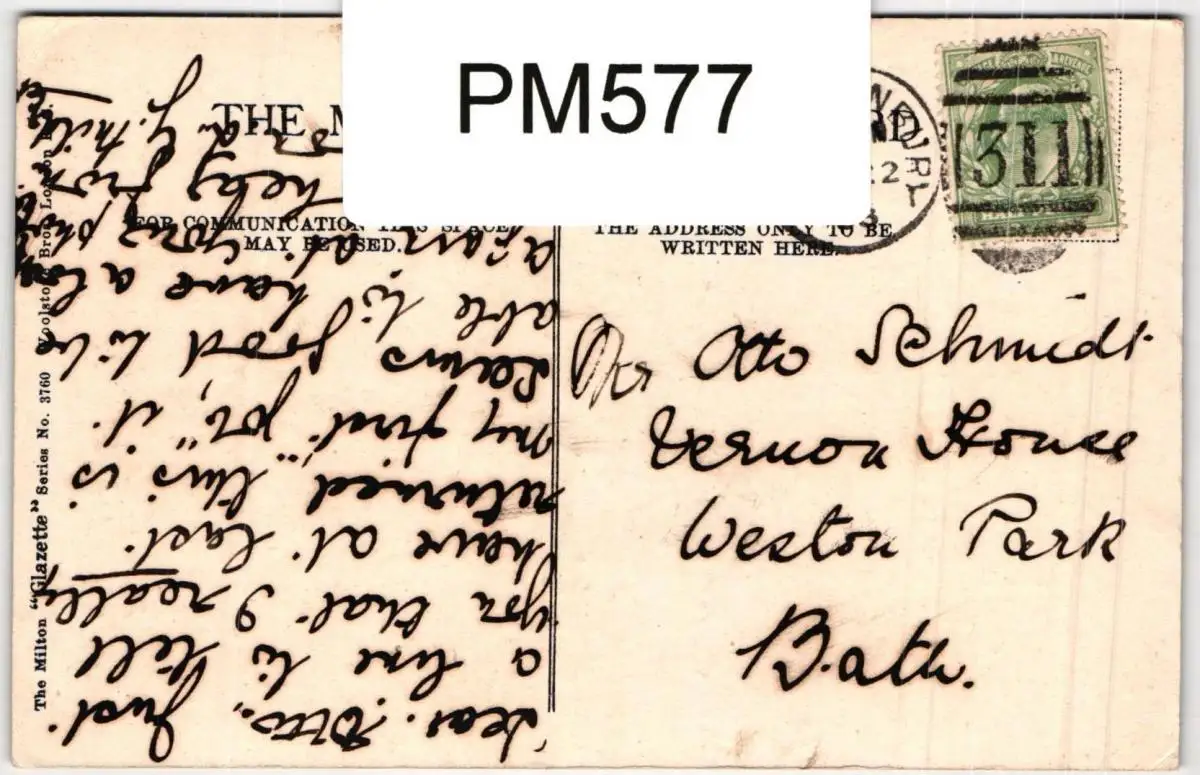 PM577
THE M
RD
FOR COMMUNICATION THIS SPACE
MAY BE USED.
THE ADDRESS ONLY TO BE
WRITTEN HERE.
311
The Milton "Glazette" Series No. 3760 Woolstone Bros. London
Mr Otto Schmidt
Vernon House
Weston Park
Bath.
Dear Otto, Just
a line to tell
you that I really
have at last
returned, "this is
my first job," it
seems good to be
able to have a